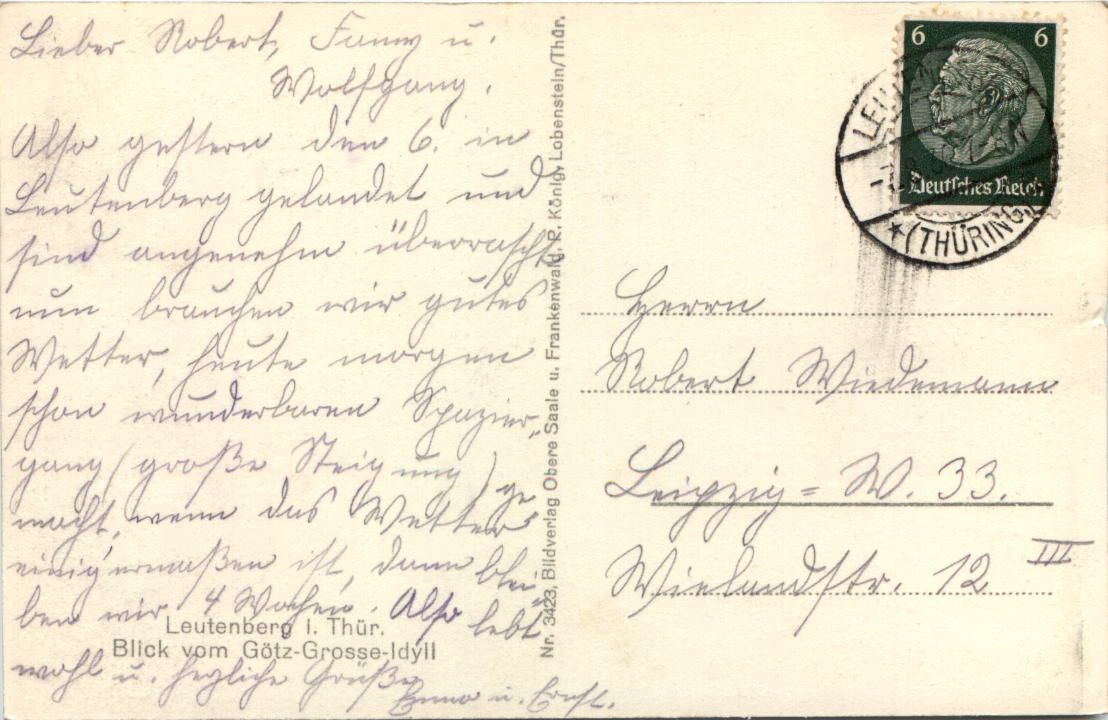 Lieber Robert, Fanny u.
Wolfgang.
Also gestern den 6. in
Leutenberg gelandet und
sind angenehm überrascht,
nun brauchen wir gutes
Wetter, heute morgen
schon wunderbaren Spazier-
gang (große Steigung) ge
macht, wenn das Wetter
einigermaßen ist, dann blei
ben wir 4 Wochen. Also lebt
wohl u. herzliche Grüße
u. Ernst.
Leutenberg i. Thür.
Blick vom Götz-Grosse-Idyll
Nr. 3423, Bildverlag Obere Saale u. Frankenwald, R. König, Lobenstein/Thür.
6 6
Deutsches Reich
(THÜRING.)
Herrn
Robert Wiedemann
Leipzig= W. 33.
Wielandstr. 12 III